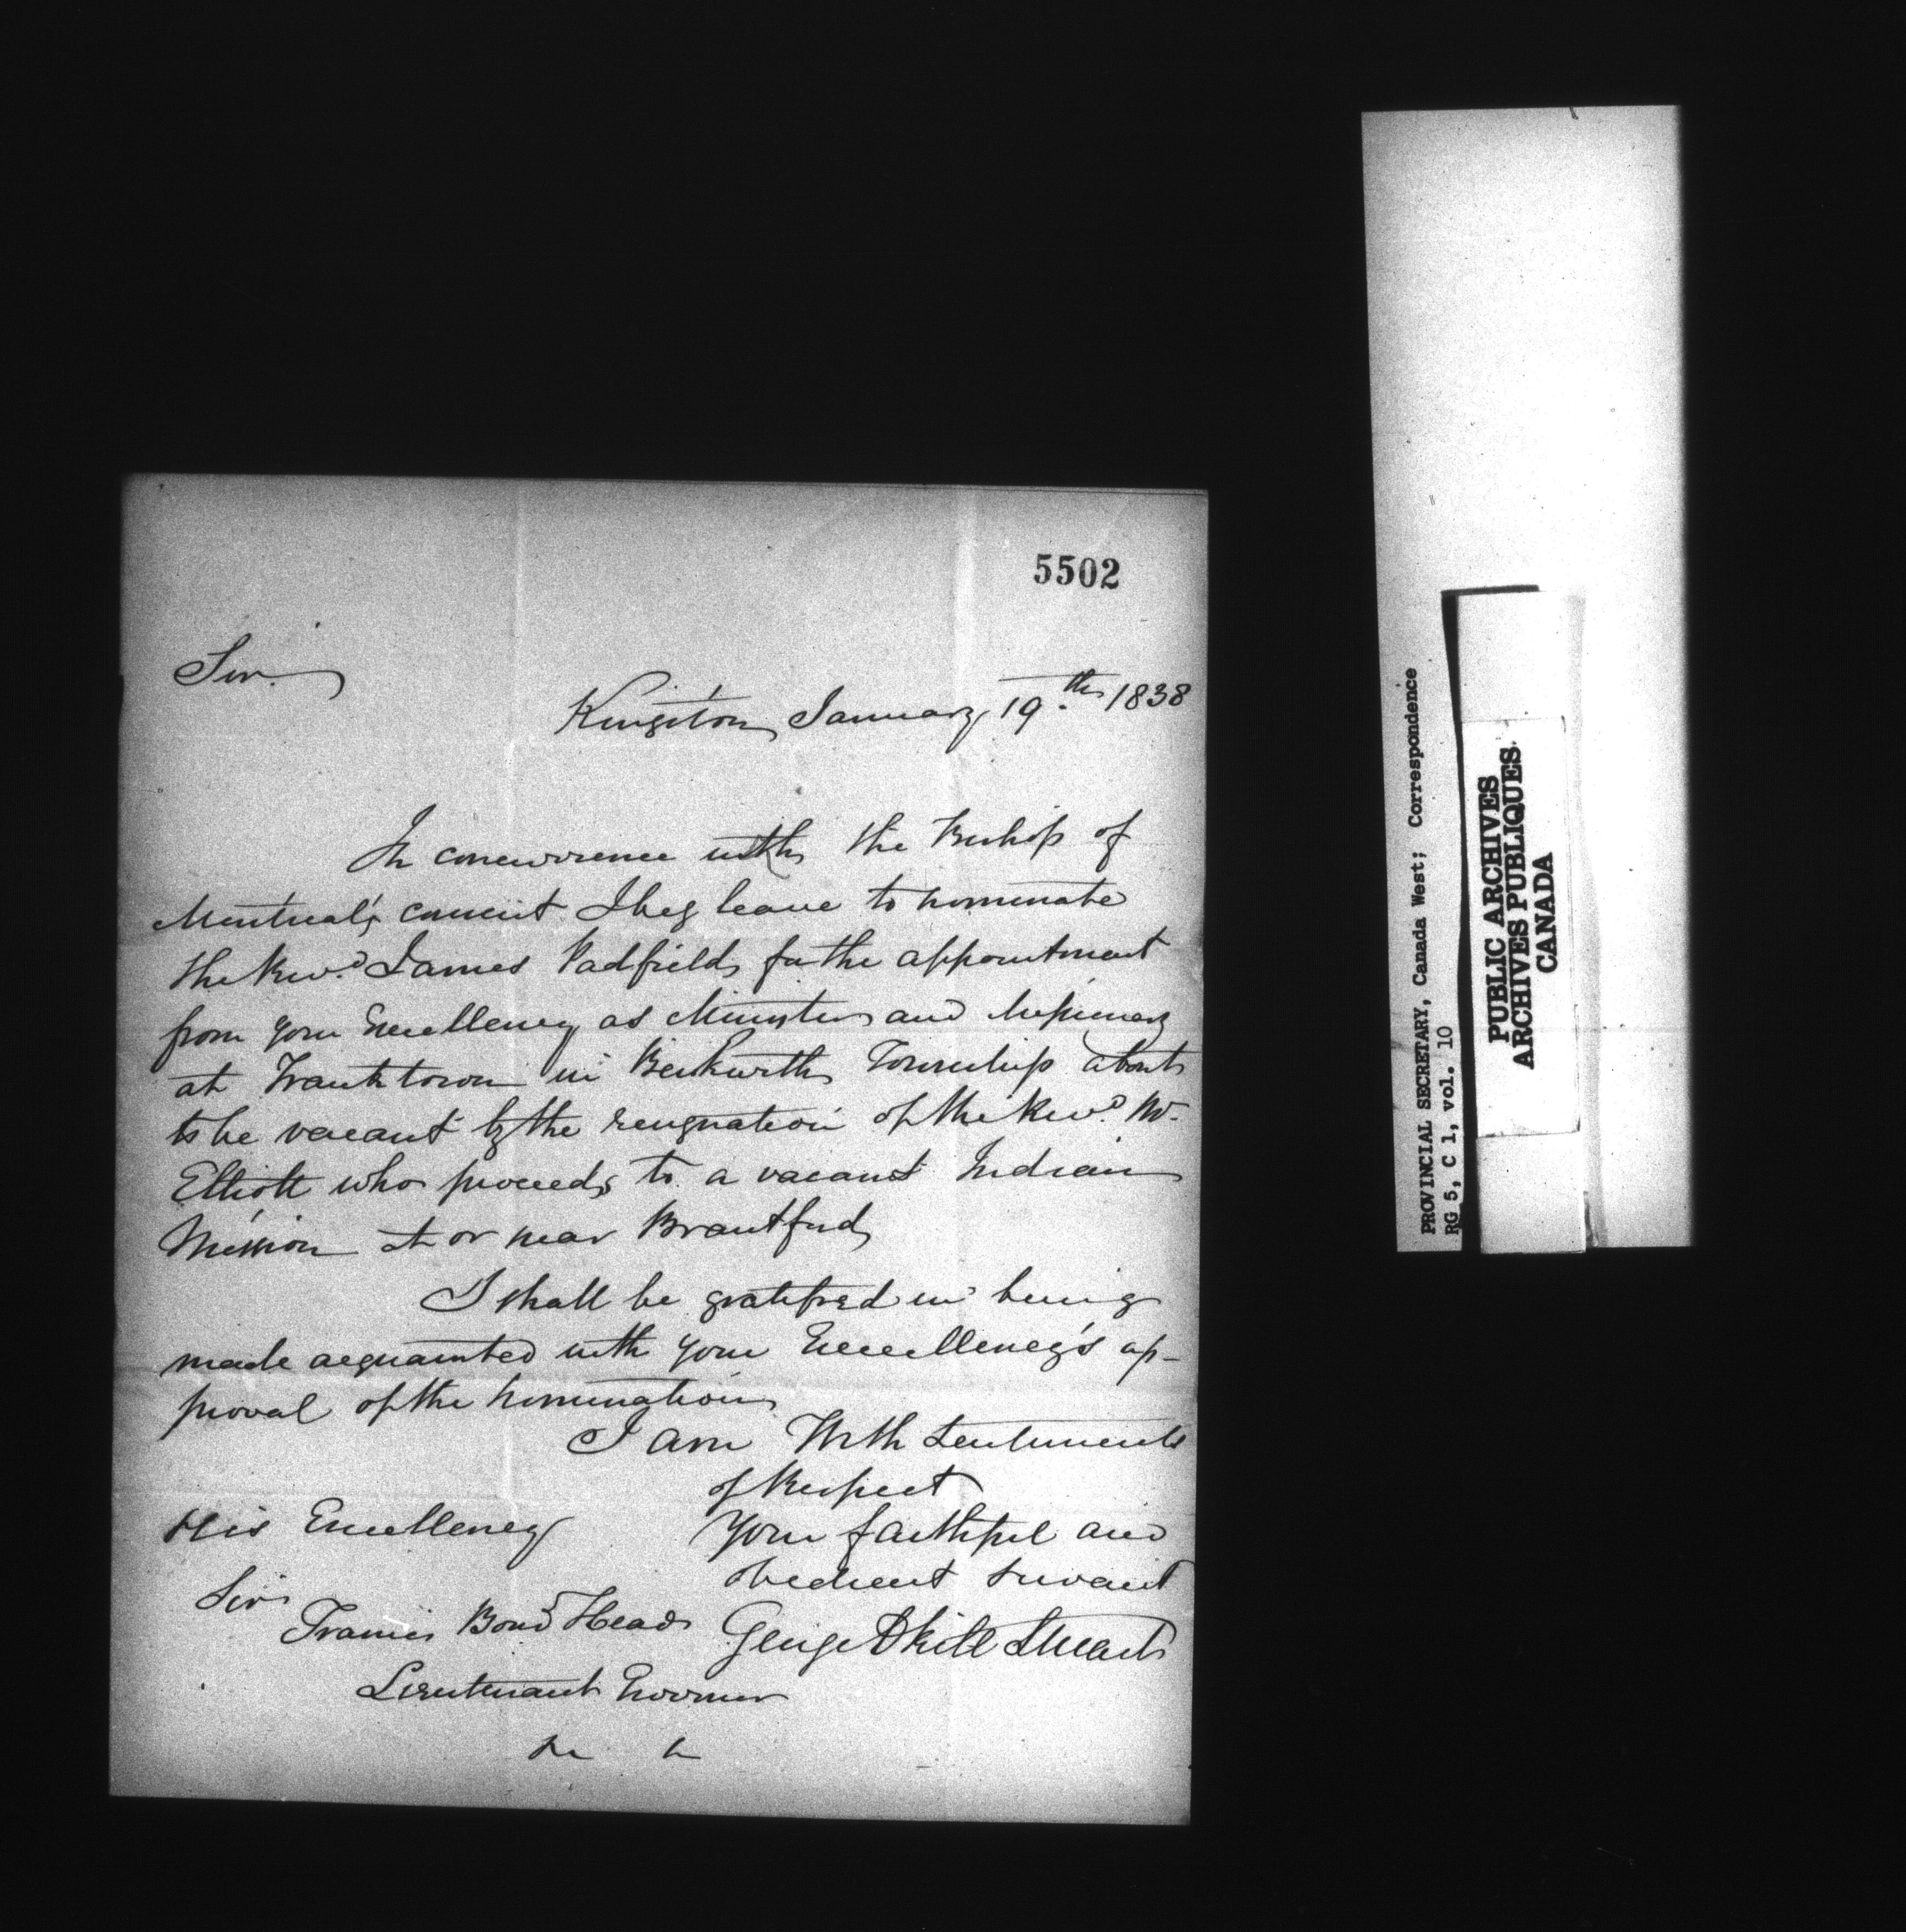 5502
Sir.
Kingston January 19.th 1838
In concurrence with the Bishop of
Montreal's consent I beg leave to nominate
the Revd. James Padfield for the appointment
from your Excellency as Minister and Missionary
at Franktown in Beckwith Township about
to be vacant by the resignation of the Revd. Mr.
Elliott who proceeds to a vacant Indian
Mission at or near Brantford
I shall be gratified in being
made acquainted with your Excellency's ap-
proval of the nomination
I am With Sentiments
of Respect
Your faithful and
obedient servant
George Okill Stuart
His Excellency
Sir
Francis Bond Head
Lieutenant Governor
PROVINCIAL SECRETARY, Canada West; Correspondence
RG 5, C 1, vol. 10
PUBLIC ARCHIVES
ARCHIVES PUBLIQUES
CANADA